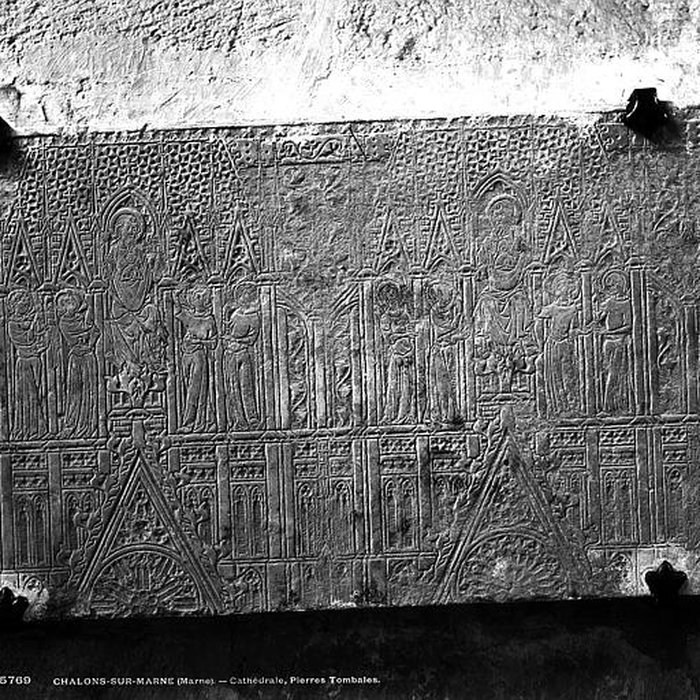 5769 CHALONS-SUR-MARNE (Marne). — Cathédrale, Pierres Tombales.